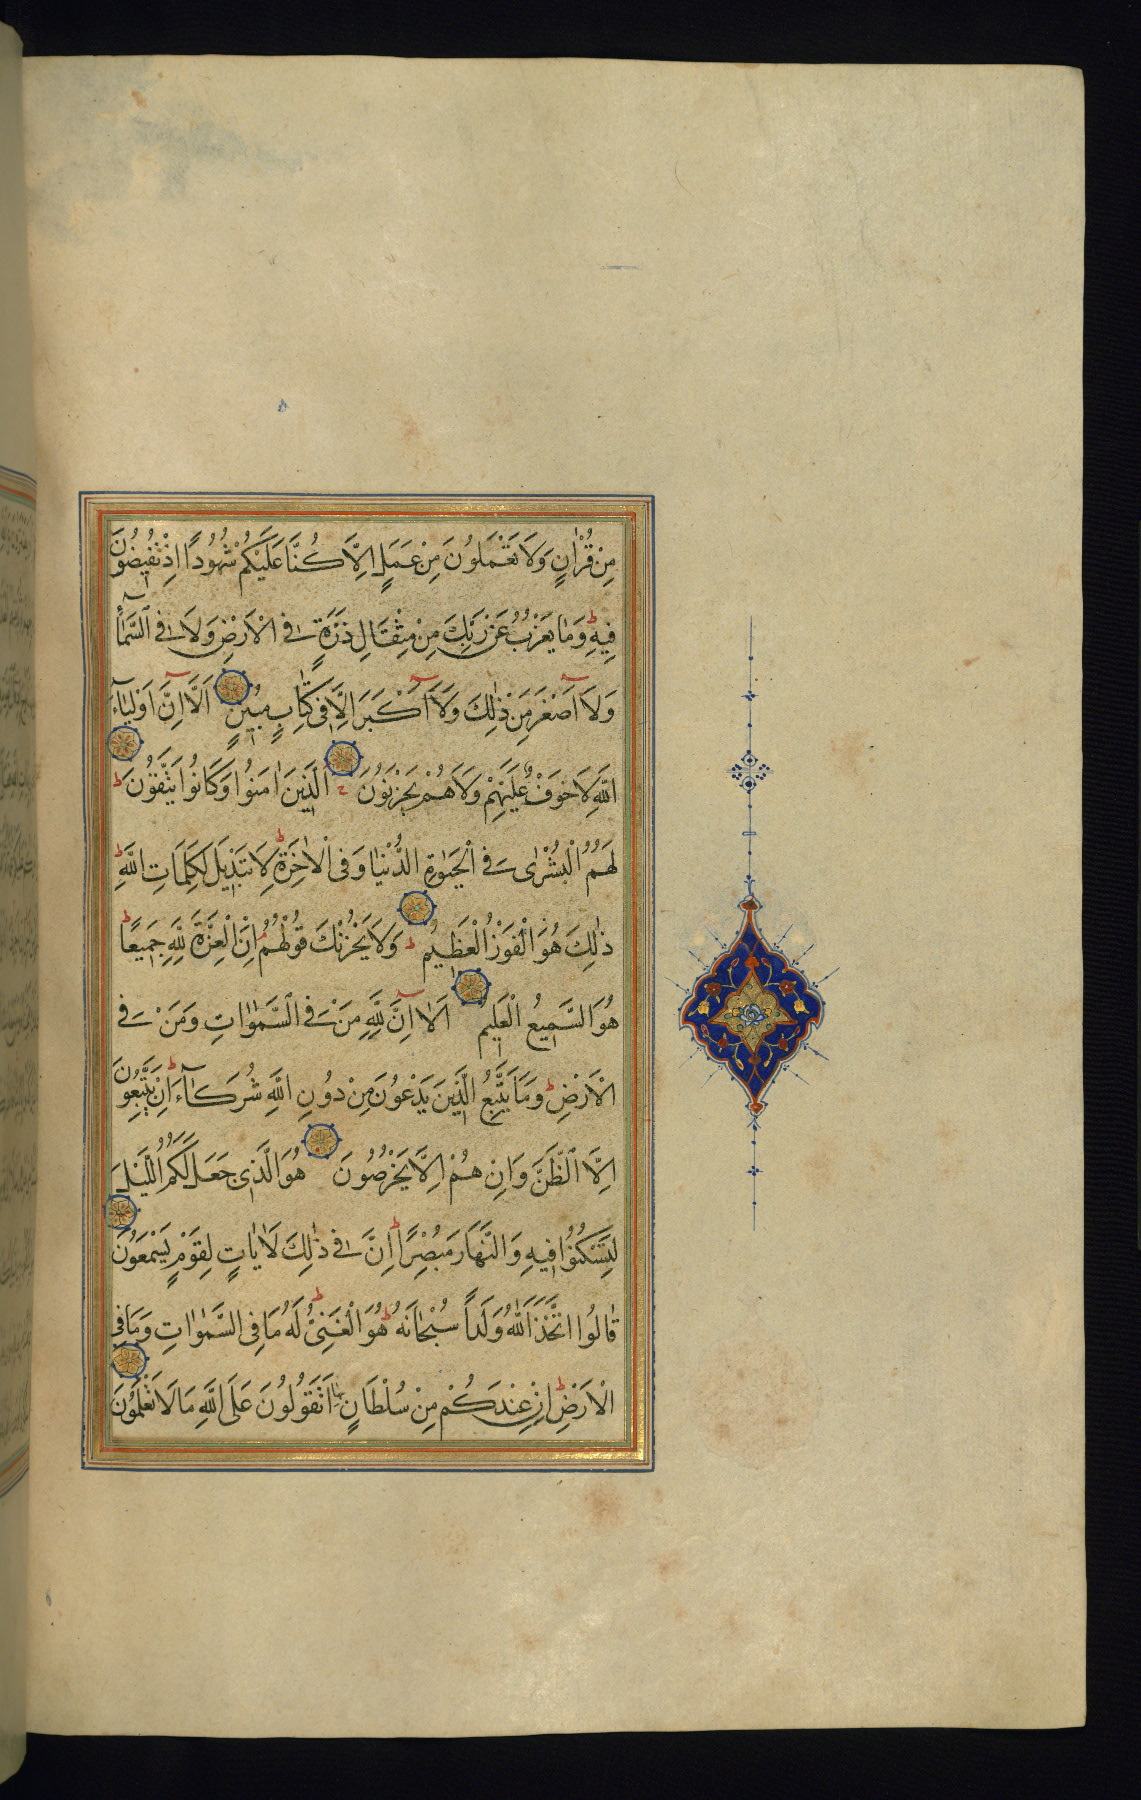 مِنْ قُرْاٰنٍ وَلَا تَعْمَلُونَ مِنْ عَمَلٍ اِلَّا كُنَّا عَلَيْكُمْ شُهُودًا اِذْ تُفِيضُونَ
فِيهِ ط وَمَا يَعْزُبُ عَنْ رَبِّكَ مِنْ مِثْقَالِ ذَرَّةٍ فِي الْاَرْضِ وَلَا فِي السَّمَآءِ
وَلَآ اَصْغَرَ مِنْ ذٰلِكَ وَلَآ اَكْبَرَ اِلَّا فِي كِتَابٍ مُبِينٍ اَلَآ اِنَّ اَوْلِيَآءَ
اللّٰهِ لَا خَوْفٌ عَلَيْهِمْ وَلَا هُمْ يَحْزَنُونَ اَلَّذِينَ اٰمَنُوا وَكَانُوا يَتَّقُونَ ط
لَهُمُ الْبُشْرٰى فِي الْحَيٰوةِ الدُّنْيَا وَفِي الْاٰخِرَةِ ط لَا تَبْدِيلَ لِكَلِمَاتِ اللّٰهِ ط
ذٰلِكَ هُوَ الْفَوْزُ الْعَظِيمُ ط وَلَا يَحْزُنْكَ قَوْلُهُمْ م اِنَّ الْعِزَّةَ لِلّٰهِ جَمِيعًا ط
هُوَ السَّمِيعُ الْعَلِيمُ اَلَآ اِنَّ لِلّٰهِ مَنْ فِي السَّمٰوَاتِ وَمَنْ فِي
الْاَرْضِ ط وَمَا يَتَّبِعُ الَّذِينَ يَدْعُونَ مِنْ دُونِ اللّٰهِ شُرَكَآءَ ط اِنْ يَتَّبِعُونَ
اِلَّا الظَّنَّ وَاِنْ هُمْ اِلَّا يَخْرُصُونَ هُوَ الَّذِي جَعَلَ لَكُمُ اللَّيْلَ
لِتَسْكُنُوا فِيهِ وَالنَّهَارَ مُبْصِرًا ط اِنَّ فِي ذٰلِكَ لَاٰيَاتٍ لِقَوْمٍ يَسْمَعُونَ
قَالُوا اتَّخَذَ اللّٰهُ وَلَدًا سُبْحَانَهُ ط هُوَ الْغَنِيُّ ط لَهُ مَا فِي السَّمٰوَاتِ وَمَا فِي
الْاَرْضِ ط اِنْ عِنْدَكُمْ مِنْ سُلْطَانٍ بِهٰذَا اَتَقُولُونَ عَلَى اللّٰهِ مَا لَا تَعْلَمُونَ